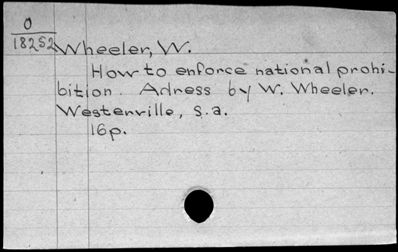 O
18252
Wheeler, W.
How to enforce national prohi-
bition. Adress by W. Wheeler.
Westerville, s.a.
16p.